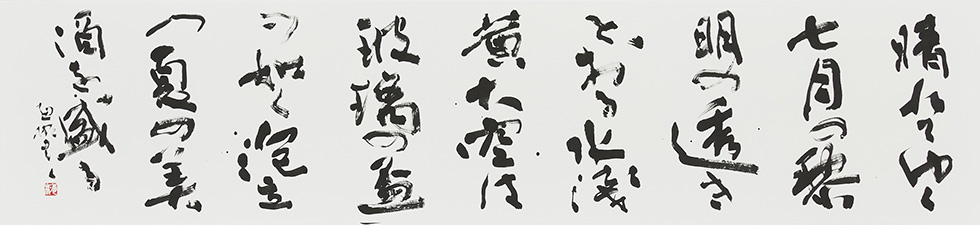 晴れてゆく
七月の黎
明の透き
とおる水浅
黄大空は
玻璃の盃
の如く泡立
つ夏の美
酒を盛る